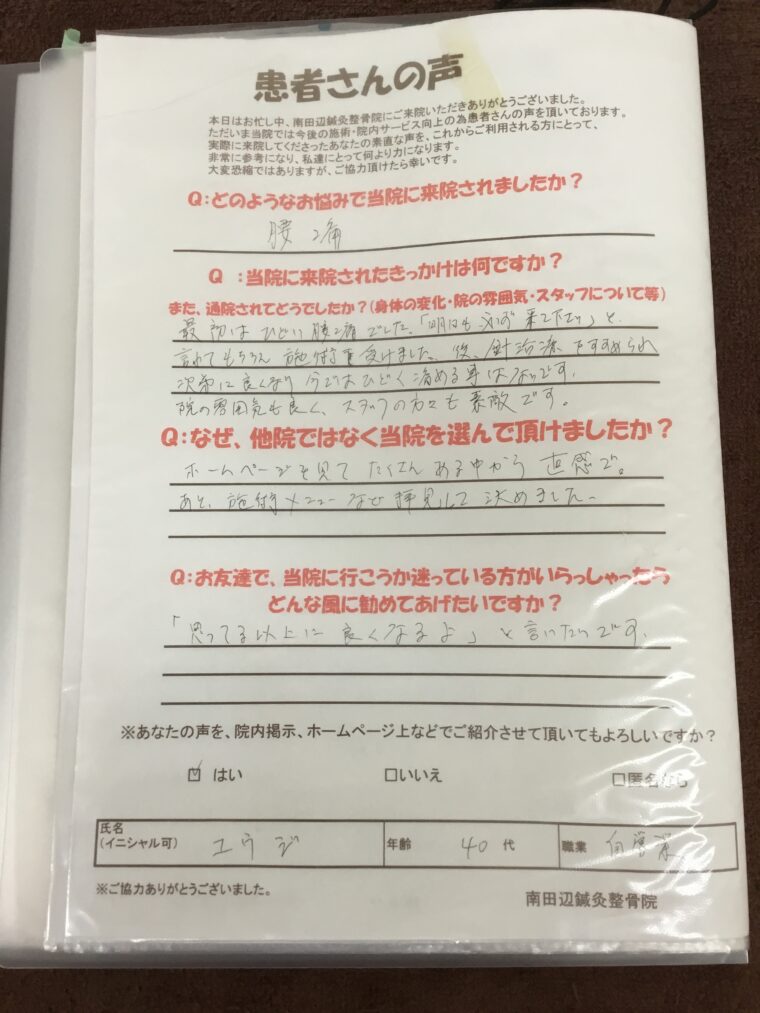 患者さんの声
本日はお忙し中、南田辺鍼灸整骨院にご来院いただきありがとうございました。
ただいま当院では今後の施術・院内サービス向上の為患者さんの声を頂いております。
実際に来院してくださったあなたの素直な声を、これからご利用される方にとって、
非常に参考になり、私達にとって何より力になります。
大変恐縮ではありますが、ご協力頂けたら幸いです。
Q:どのようなお悩みで当院に来院されましたか?
腰痛
Q :当院に来院されたきっかけは何ですか?
また、通院されてどうでしたか?(身体の変化・院の雰囲気・スタッフについて等)
最初はひどい腰痛でした。「明日も必ず来て下さい」と
言われてもちろん施術を受けました。後、針治療をすすめられ
次第に良くなり今ではひどく痛める事はないです。
院の雰囲気も良く、スタッフの方々も素敵です。
Q:なぜ、他院ではなく当院を選んで頂けましたか?
ホームページを見てたくさんある中から直感で。
あと、施術メニューなど拝見して決めました。
Q:お友達で、当院に行こうか迷っている方がいらっしゃったら
どんな風に勧めてあげたいですか?
「思ってる以上に良くなるよ」と言いたいです。
※あなたの声を、院内掲示、ホームページ上などでご紹介させて頂いてもよろしいですか?
☑ はい □いいえ □匿名なら
氏名 (イニシャル可) ユウジ 年齢 40 代 職業 自営業
※ご協力ありがとうございました。
南田辺鍼灸整骨院